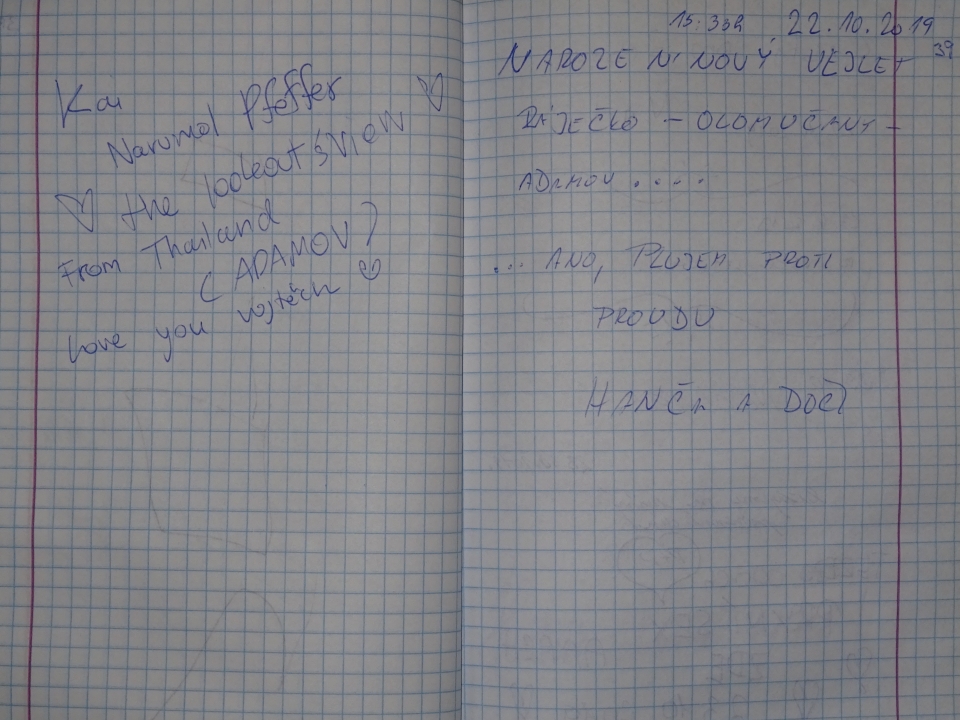 Kai
Narumol Pfeffer
the lookout's view
From Thailand
( ADAMOV )
Love you Vojtěch
22.10.2019
39
NAROZENINOVÝ VEJLET
RÁJEČKO - OLOMUČANY -
ADAMOV ....
... ANO, PLUJEM PROTI
PROUDU
HANČA A